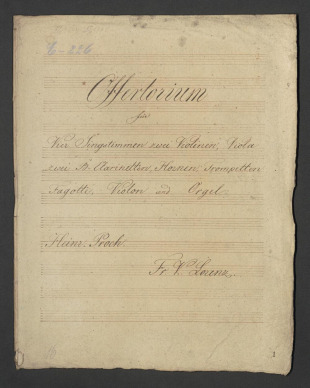 Offertorium
für
Vier Singstimmen zwei Violinen, Viola
zwei B. Clarinetten, Hörner, Trompetten
Fagotti, Violon und Orgel.
Heinr. Proch.
Fr. V. Lorenz